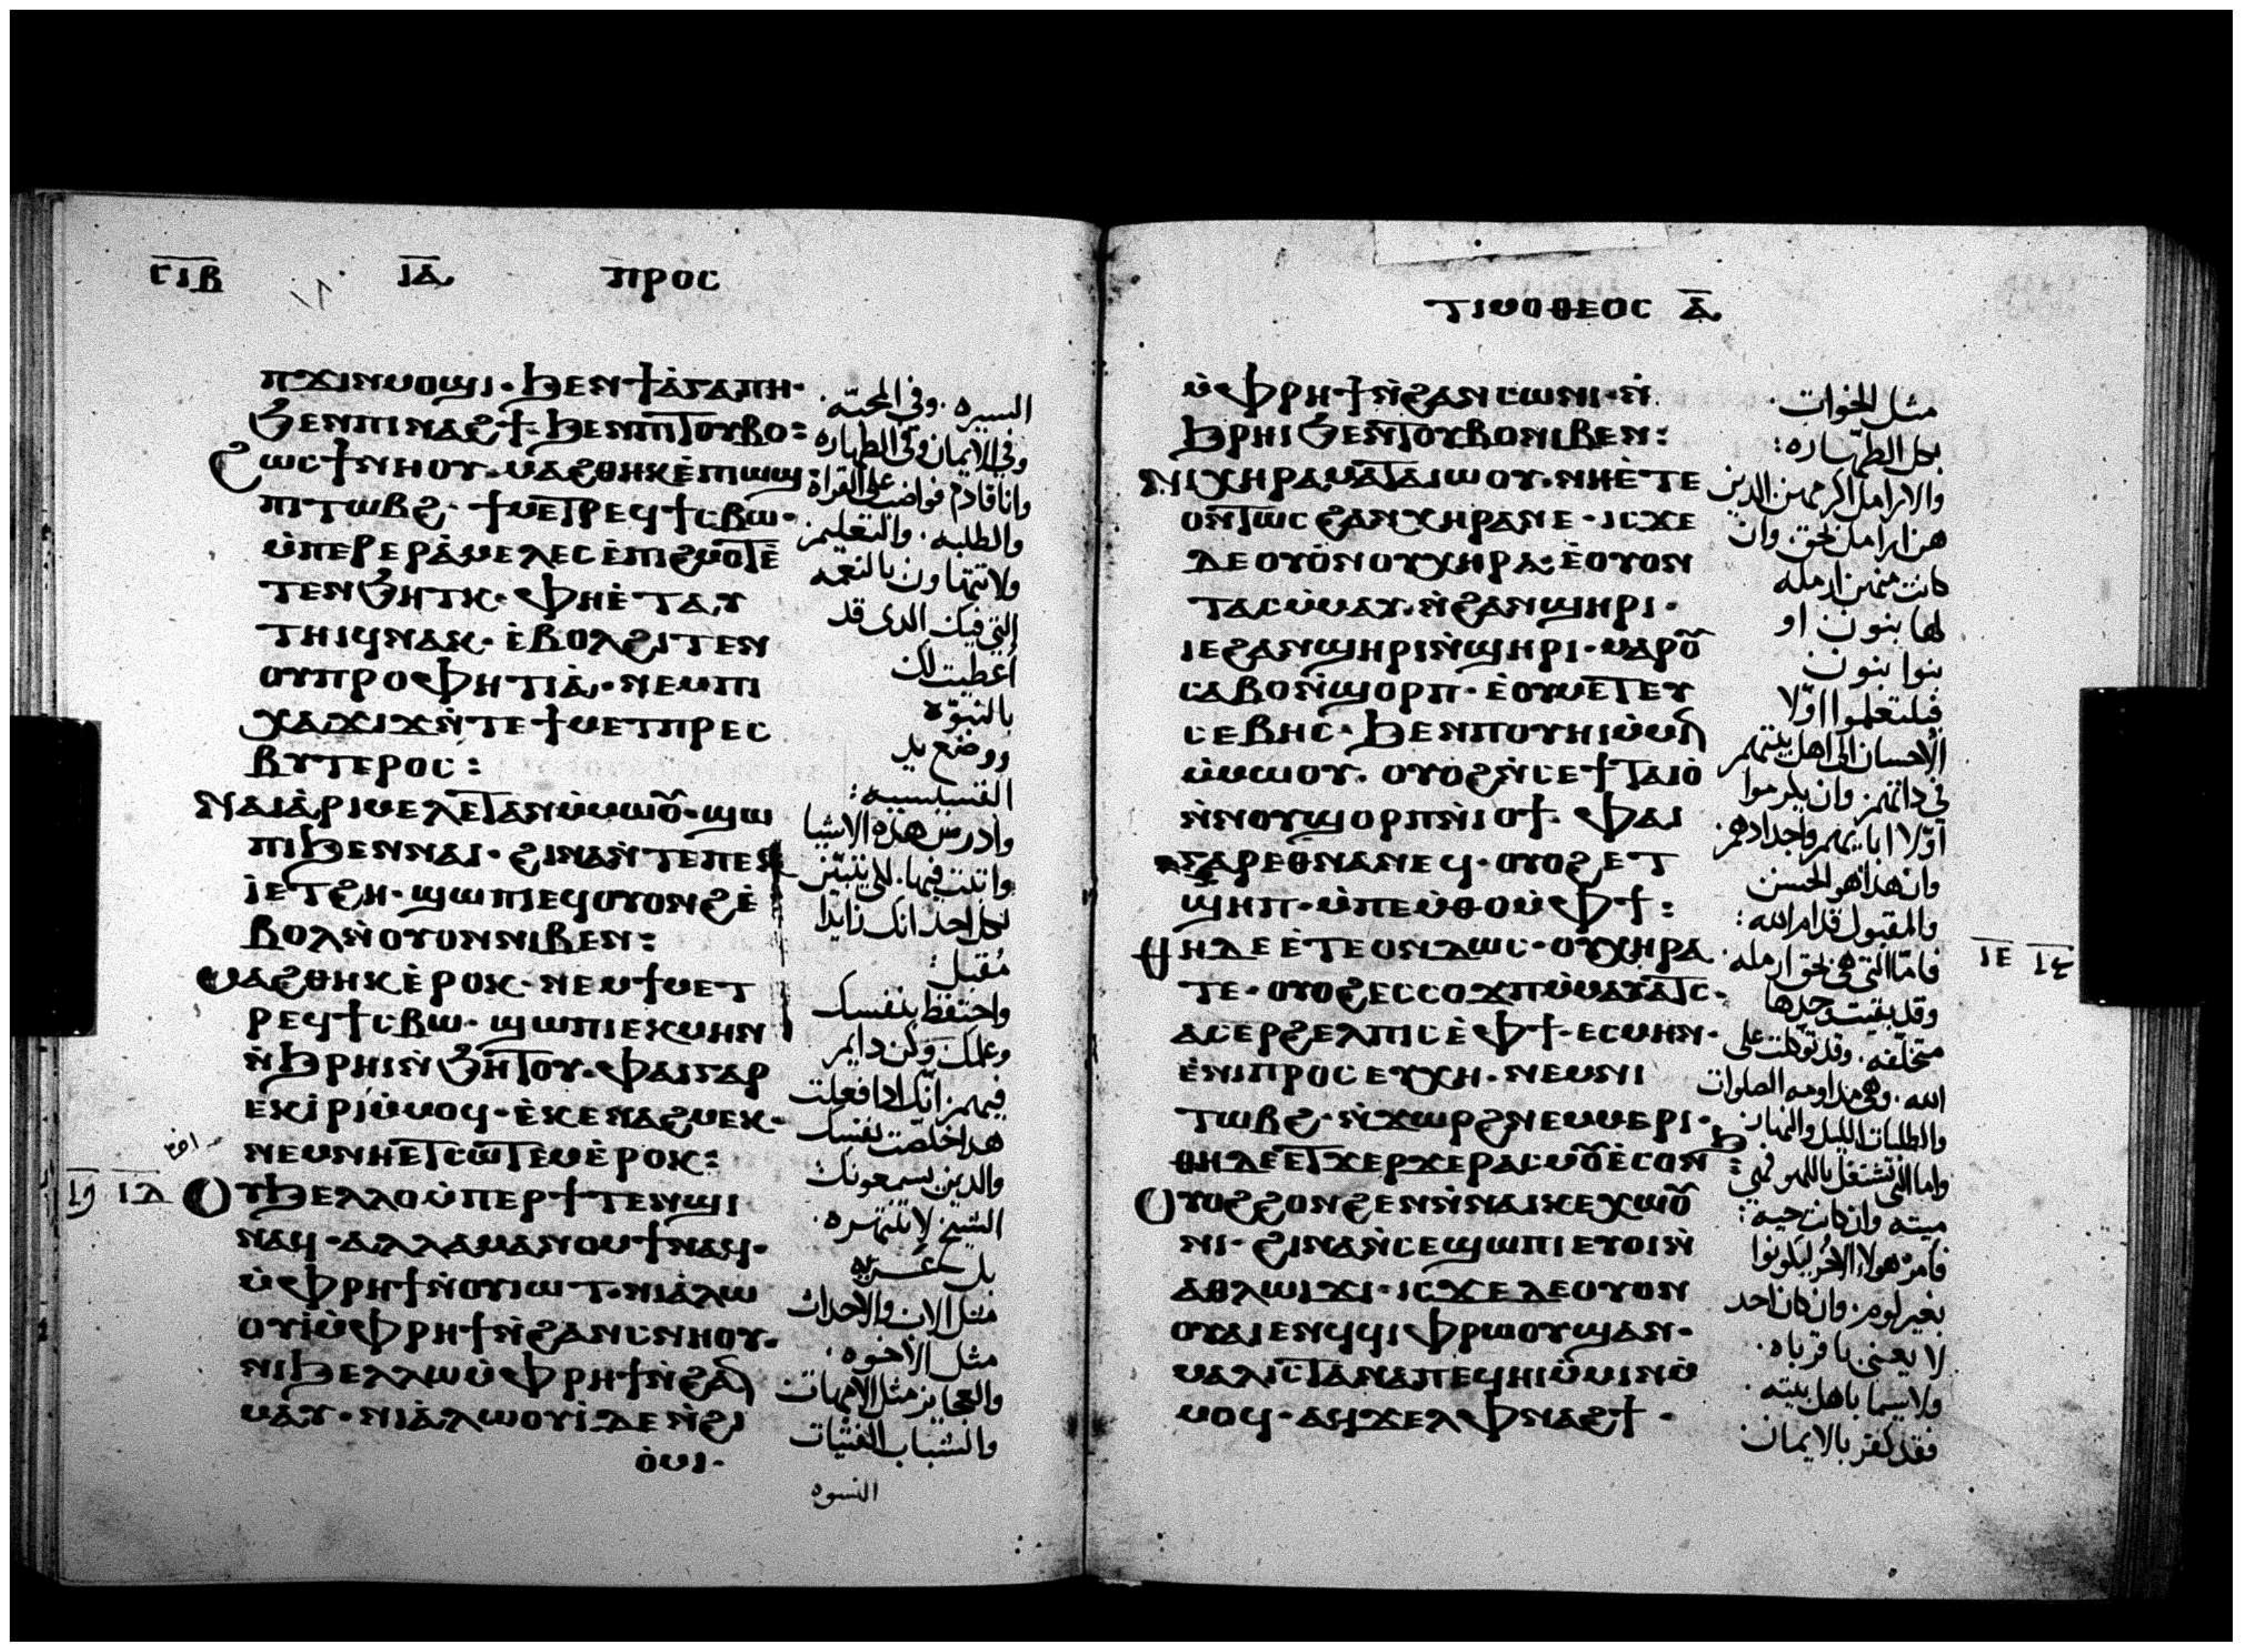 ⲥⲓⲃ ⲓⲁ ⲡⲣⲟⲥ
ⲡϫⲓⲛⲙⲟϣⲓ· ϧⲉⲛϯⲁ̀ⲅⲁⲡⲏ·
ϧⲉⲛⲡⲓⲛⲁϩϯ· ϧⲉⲛⲡⲓⲧⲟⲩⲃⲟ:
ϩⲱⲥϯⲛⲏⲟⲩ· ⲙⲁϩⲑⲏⲕⲉ̀ⲡⲓⲱϣ
ⲡⲓⲧⲱⲃϩ· ϯⲙⲉⲧⲣⲉϥϯⲥⲃⲱ·
ⲙ̀ⲡⲉⲣⲉⲣⲁ̀ⲙⲉⲗⲉⲥⲉ̀ⲡⲓϩⲙⲟⲧⲉ̀
ⲧⲉⲛϧⲏⲧⲕ· ⲫⲏⲉ̀ⲧⲁⲩ
ⲧⲏⲓϥⲛⲁⲕ· ⲉ̀ⲃⲟⲗϩⲓⲧⲉⲛ
ⲟⲩⲡⲣⲟⲫⲏⲧⲓⲁ̀· ⲛⲉⲙⲡⲓ
ⲭⲁϫⲓϫⲛ̀ⲧⲉϯⲙⲉⲧⲡⲣⲉⲥ
ⲃⲩⲧⲉⲣⲟⲥ:
ⲛⲁⲓⲁ̀ⲣⲓⲙⲉⲗⲉⲧⲁⲛⲙ̀ⲙⲱⲟⲩ· ϣⲱ
ⲡⲓϧⲉⲛⲛⲁⲓ· ϩⲓⲛⲁⲛ̀ⲧⲉⲡⲉⲕ
ⲓ̀ⲉⲧϩⲏ· ϣⲱⲡⲓⲉϥⲟⲩⲟⲛϩⲉ̀
ⲃⲟⲗⲛ̀ⲟⲩⲟⲛⲛⲓⲃⲉⲛ:
ⲙⲁϩⲑⲏⲕⲉ̀ⲣⲟⲕ· ⲛⲉⲙϯⲙⲉⲧ
ⲣⲉϥϯⲥⲃⲱ· ϣⲱⲡⲓⲉⲕⲙⲏⲛ
ⲛ̀ϧⲣⲏⲓⲛ̀ϧⲏⲧⲟⲩ· ⲫⲁⲓⲅⲁⲣ
ⲉⲕⲓ̀ⲣⲓⲙ̀ⲙⲟϥ· ⲉ̀ⲕⲉⲛⲁϩⲙⲉⲕ·
ⲛⲉⲙⲛⲏⲉⲧⲥⲱⲧⲉⲙⲉ̀ⲣⲟⲕ:
ⲓⲇ ⲟⲩϧⲉⲗⲗⲟⲙ̀ⲡⲉⲣϯⲧⲉⲛϣⲓ
ⲛⲁϥ· ⲁⲗⲗⲁⲙⲁⲛⲟⲙϯⲛⲁϥ·
ⲙ̀ⲫⲣⲏϯⲛ̀ⲟⲩⲓⲱⲧ· ⲛⲓⲁ̀ⲗⲱ
ⲟⲩⲓ̀ⲙ̀ⲫⲣⲏϯⲛ̀ϩⲁⲛⲥⲛⲏⲟⲩ·
ⲛⲓϧⲉⲗⲗⲱⲙ̀ⲫⲣⲏϯⲛ̀ϩⲁⲛ
ⲙⲁⲩ· ⲛⲓⲁ̀ⲗⲱⲟⲩⲓ̀ⲇⲉⲛ̀ϩⲓ
ⲟ̀ⲙⲓ·
السيره· وفي المحبّه·
وفي الايمان وفي الطهاره
وانا قادم فواضب على القراة
والطلبه· والتعليم
ولا تتهاون بالنعمه
التي فيك الذى قد
اعطيت لك
بالنبوّة
ووضع يد
القسيسيه:
وادرس هذه الاشيا
واثبت فيها· لكي يتبيّن
لكل احد انك زايدا
مُقبل:
واحتفظ بنفسك
وعلمك وكن دايم
فيهم· انّك اذا فعلت
هذا خلصت نفسك
والدين يسمعونك
الشيخ لا تنتهره·
بل عزيه
مثل الاب والاحداث
مثل الاخوه·
والعجايز مثل الامهات
والشباب الفتيات
النسوه
ⲧⲓⲙⲟⲑⲉⲟⲥ ⲁ̅
ⲙ̀ⲫⲣⲏϯⲛ̀ϩⲁⲛⲥⲱⲛⲓ· ⲛ̀
ϧⲣⲏⲓϧⲉⲛⲧⲟⲩⲃⲟⲛⲓⲃⲉⲛ:
ⲛⲓⲭⲏⲣⲁⲙⲁⲧⲁⲓⲱⲟⲩ· ⲛⲏⲉ̀ⲧⲉ
ⲟⲛⲧⲱⲥϩⲁⲛⲭⲏⲣⲁⲛⲉ· ⲓⲥϫⲉ
ⲇⲉⲟⲩⲟ̀ⲛⲟⲩⲭⲏⲣⲁ· ⲉ̀ⲟⲩⲟⲛ
ⲧⲁⲥⲙ̀ⲙⲁⲩ· ⲛ̀ϩⲁⲛϣⲏⲣⲓ·
ⲓⲉϩⲁⲛϣⲏⲣⲓⲛ̀ϣⲏⲣⲓ· ⲙⲁⲣⲟⲩ
ⲥⲁⲃⲟⲛ̀ϣⲟⲣⲡ· ⲉ̀ⲟⲩⲙⲉⲧⲉⲩ
ⲥⲉⲃⲏⲥ· ϧⲉⲛⲡⲟⲩⲏⲓⲙ̀ⲙⲓⲛ
ⲙ̀ⲙⲱⲟⲩ· ⲟⲩⲟϩⲛ̀ⲥⲉϯⲧⲁⲓⲟ̀
ⲛ̀ⲛⲟⲩϣⲟⲣⲡⲛ̀ⲓⲟϯ· ⲫⲁⲓ
ⲅⲁⲣⲉⲑⲛⲁⲛⲉϥ· ⲟⲩⲟϩⲉⲧ
ϣⲏⲡ· ⲙ̀ⲡⲉⲙ̀ⲑⲟⲙ̀ⲫϯ:
ⲑⲏⲇⲉⲉ̀ⲧⲉⲟⲛⲇⲱⲥ· ⲟⲩⲭⲏⲣⲁ ⲓⲉ
ⲧⲉ· ⲟⲩⲟϩⲉⲥⲥⲟϫⲡⲙ̀ⲙⲁⲩⲁⲧⲥ·
ⲁⲥⲉⲣϩⲉⲗⲡⲓⲥⲉ̀ⲫϯ· ⲉⲥⲙⲏⲛ·
ⲉ̀ⲛⲓⲡⲣⲟⲥⲉⲩⲭⲏ· ⲛⲉⲙⲛⲓ
ⲧⲱⲃϩ· ⲛ̀ϫⲱⲣϩⲛⲉⲙⲙⲉⲣⲓ·
ⲑⲏⲇⲉⲉⲧϫⲉⲣϫⲉⲣⲁⲥⲙⲟⲩⲉ̀ⲥⲟⲛϧ:
ⲟⲩⲟϩϩⲟⲛϩⲉⲛⲛ̀ⲛⲁⲓⲕⲉⲭⲱⲟⲩ
ⲛⲓ· ϩⲓⲛⲁⲛ̀ⲥⲉϣⲱⲡⲓⲉⲩⲟⲓⲛ̀
ⲁⲑⲗⲱⲓϫⲓ· ⲓⲥϫⲉⲇⲉⲟⲩⲟⲛ
ⲟⲩⲁⲓⲉⲛϥϥⲓⲫⲣⲱⲟⲩϣⲁⲛ·
ⲙⲁⲗⲓⲥⲧⲁⲛⲁⲡⲉϥⲏⲓⲙ̀ⲙⲓⲛⲙ̀
ⲙⲟϥ· ⲁϥϫⲉⲗⲫⲛⲁϩϯ·
مثل الاخوات·
بكل الطهّاره:
والارامل اكرمهن الدين
هن ارامل بحق· وان
كانت منهن ارمله
لها بنون او
بنوا بنون
فيلتعلموا اوّلا
الاحسان الى اهل بيتهم
في ذاتهم· وان يكرموا
اوّلا ابايهم واجدادهم·
وان هذا هو الحسن
والمقبول قدام الله:
فامّا التي هي بحق ارمله·
وقد بقيت وحدها
متخلّفه· وقد توكّلت على
الله· وهي مداومه الصلوات
والطلبات الليل والنهار
واما التي تشتغل باللهو فهي
ميته وان كانت حيه:
فامرْ هولاء الاخر ليكونوا
بغير لوم· وان كان احد
لا يعنى باقرباه·
ولا سيما باهل بيته·
فقد كفر بالايمان